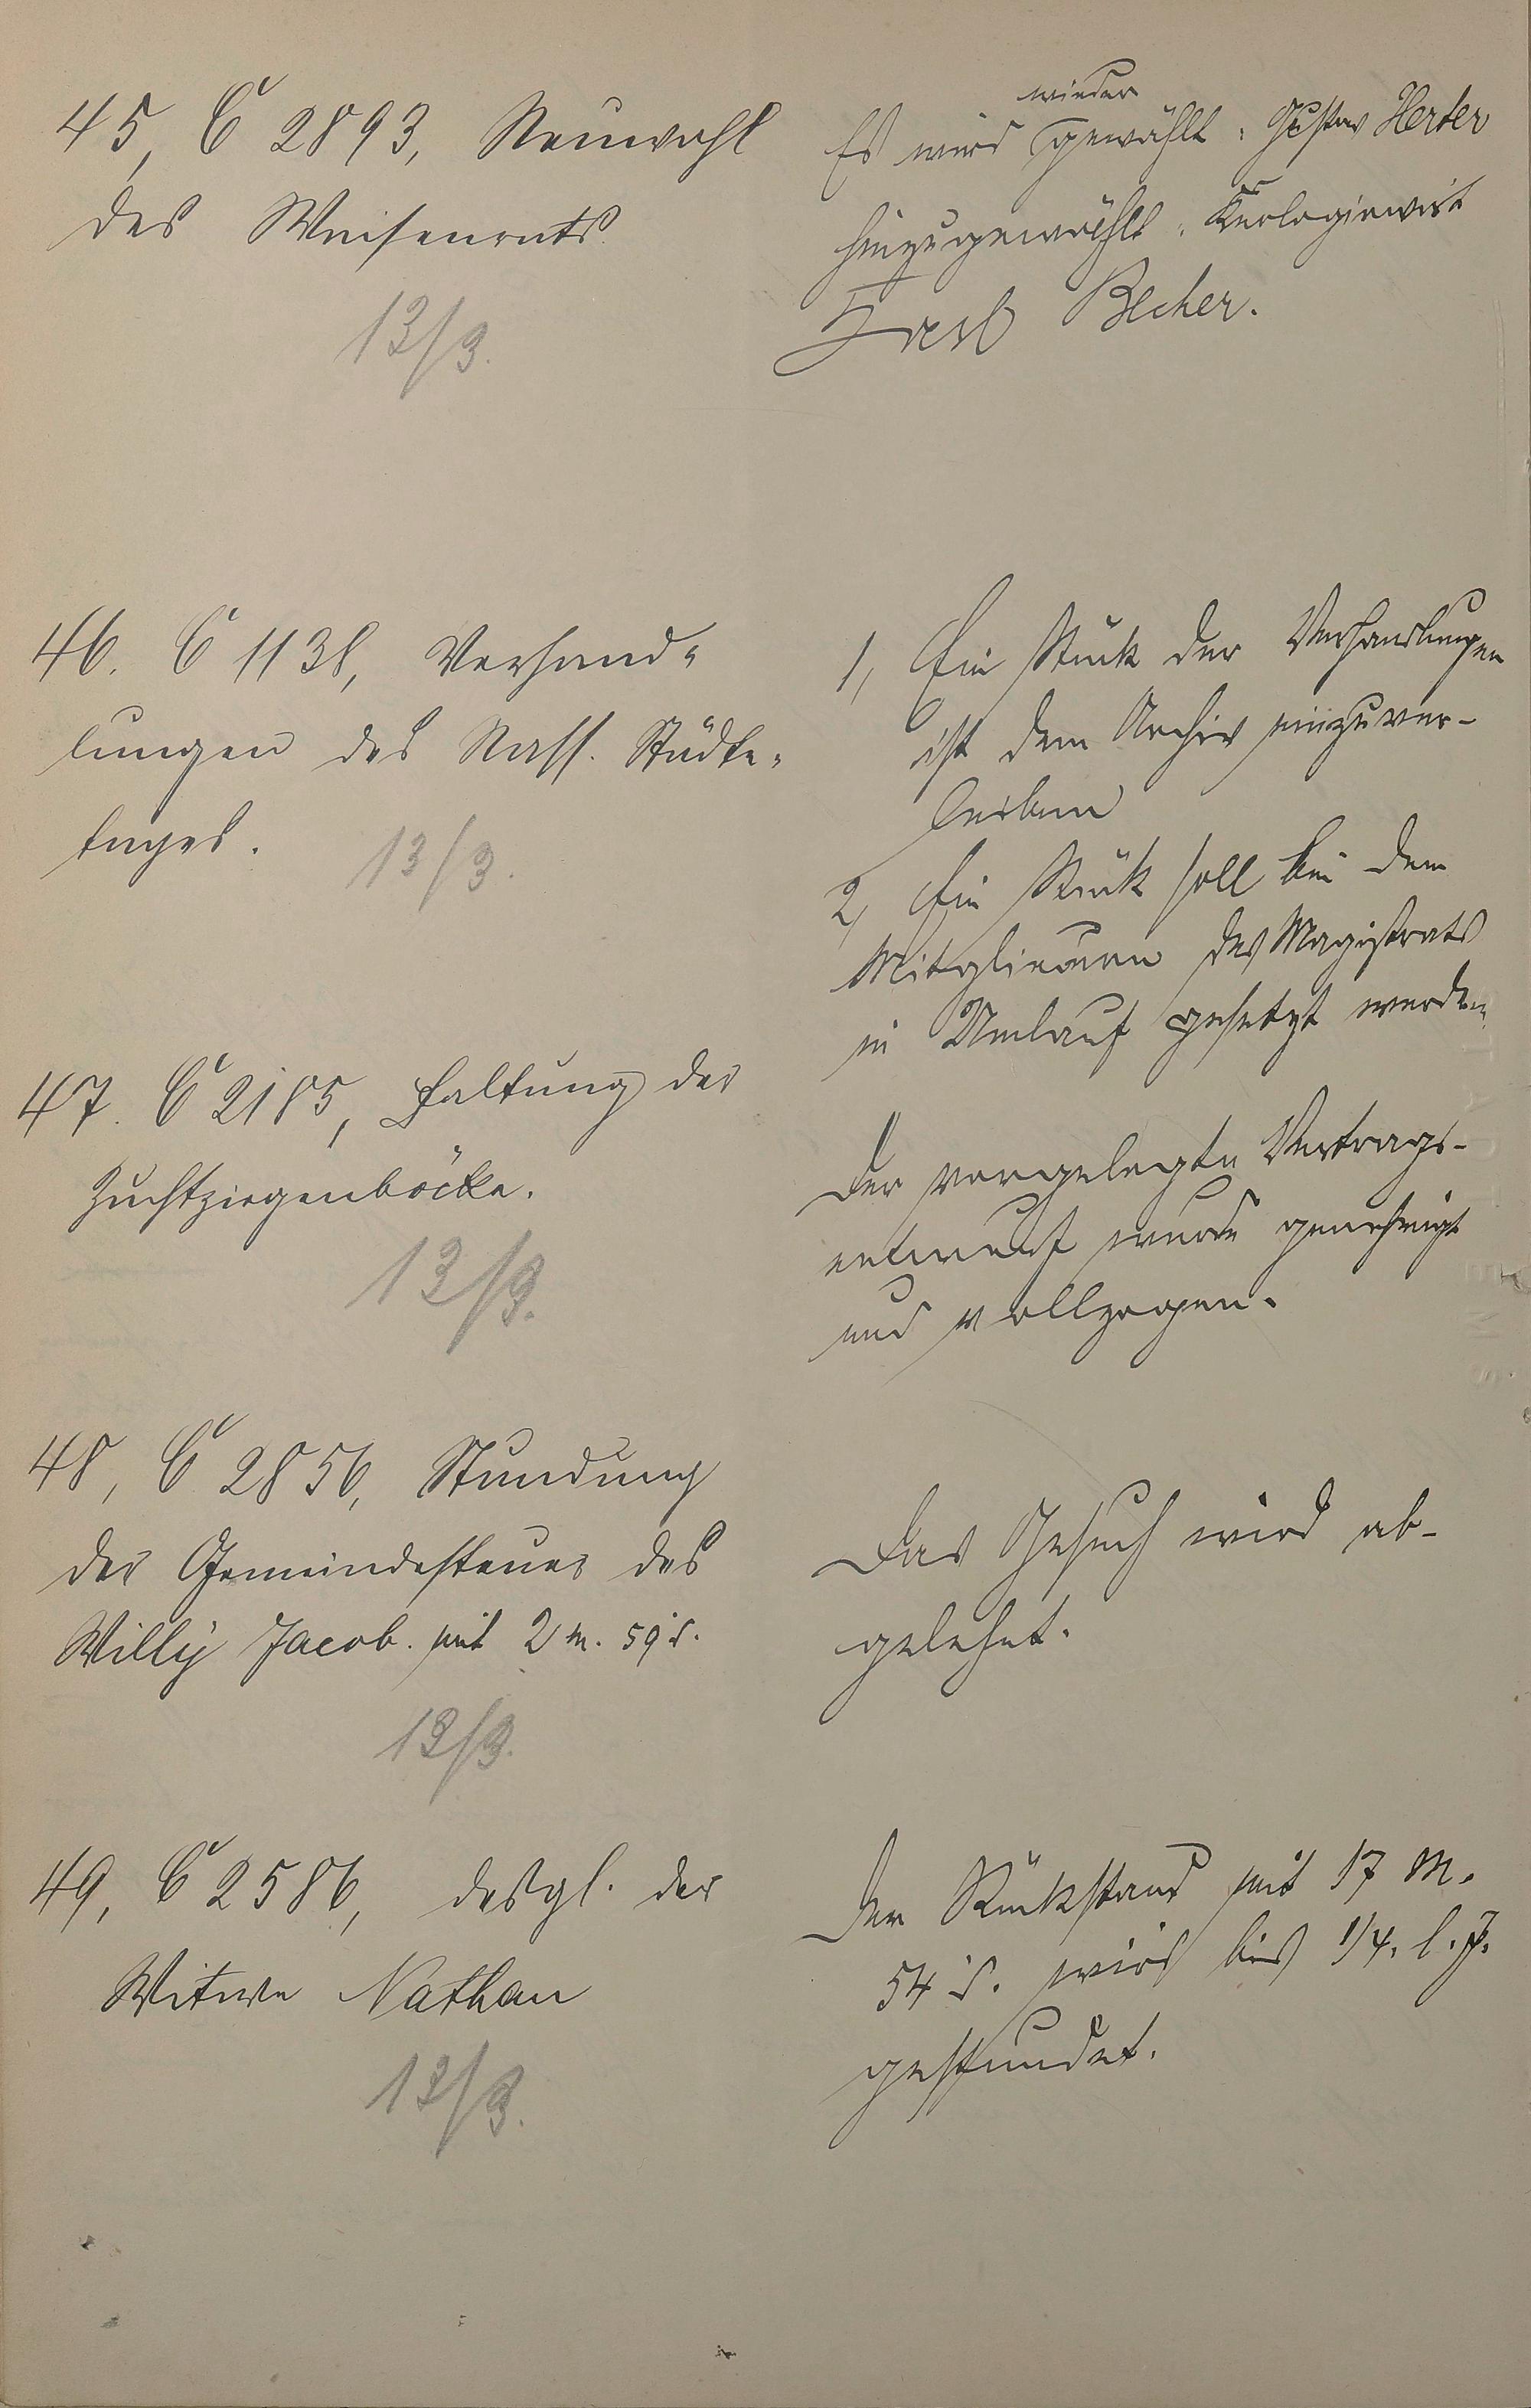 45, C 2893, Neuwahl
des Waisenrats.
13/3.
wieder
Es wird gewählt: Gustav Herber
hinzugewählt: Kurlogiewirt
Karl Becher.
46. C 1138, Verhand-
lungen des Nass. Städte-
tages.
13/3.
1, Ein Stück der Verhandlungen
ist dem Archiv einzuver-
leiben
2, Ein Stück soll bei dem
Mitgliedern des Magistrats
in Umlauf gesetzt werden.
47. C 2185, Haltung der
Zuchtziegenböcke.
13/3.
Der vorgelegte Vertrags-
entwurf wurde genehmigt
und vollzogen.
48, C 2856, Stundung
der Gemeindesteuer des
Willy Jacob. mit 2 M. 59 d.
13/3.
Das Gesuch wird ab-
gelehnt.
49, C 2586, desgl. der
Witwe Nathan
13/3.
Der Rückstand mit 17 M.
54 d. wird bis 1/4. l. J.
gestundet.